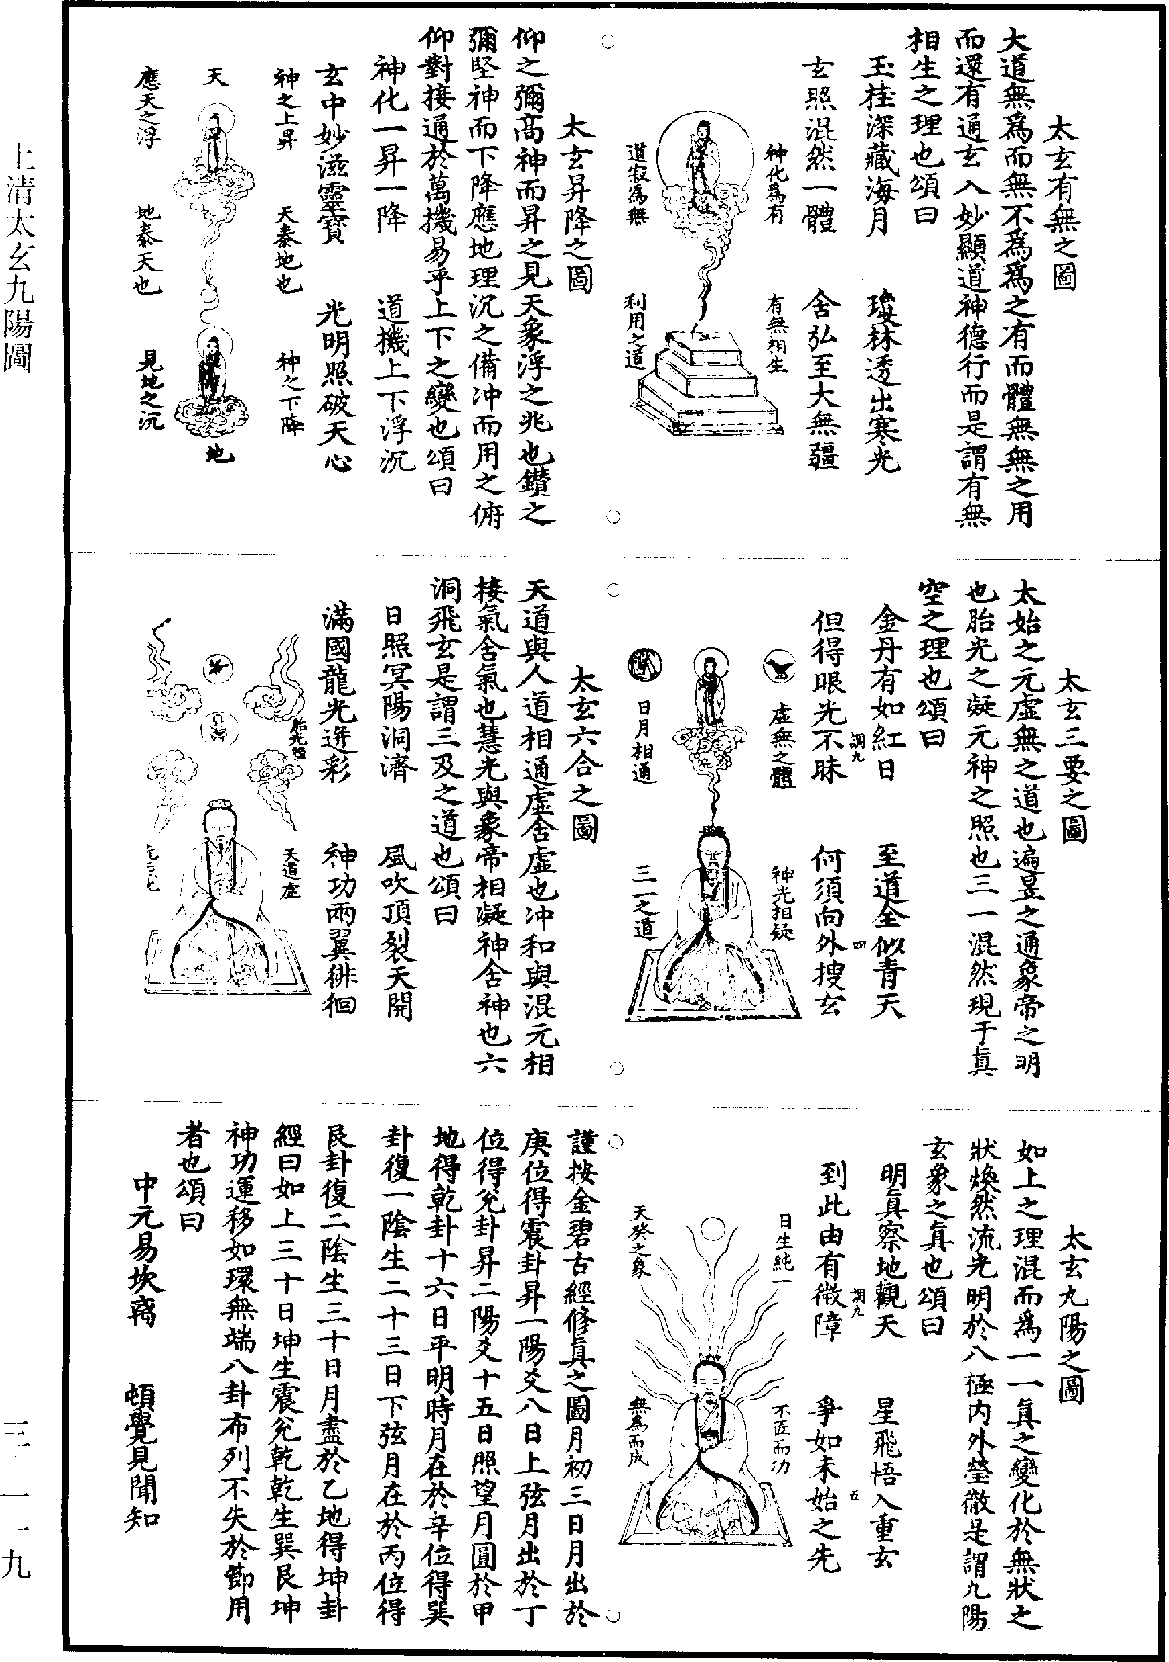 上清太玄九陽圖
三一一九
太玄有無之圖
大道無爲而無不爲爲之有而體無無之用
而還有通玄入妙顯道神德行而是謂有無
相生之理也頌曰
玉桂深藏海月 瓊林透出寒光
玄照混然一體 含弘至大無疆
神化爲有 有無相生
道寂爲無 利用之道
太玄昇降之圖
仰之彌高神而昇之見天象浮之兆也鑽之
彌堅神而下降應地理沉之備冲而用之俯
仰對接通於萬機易乎上下之變也頌曰
神化一昇一降 道機上下浮沉
玄中妙滋靈寶 光明照破天心
神之上昇 天泰地也 神之下降
天
地
應天之浮 地泰天也 見地之沉
太玄三要之圖
太始之元虛無之道也遍昱之通象帝之明
也胎光之凝元神之照也三一混然現于眞
空之理也頌曰
金丹有如紅日 至道全似青天
闕九 四
但得眼光不昧 何須向外搜玄
虛無之體 神光相凝
日月相通 三一之道
太玄六合之圖
天道與人道相通虛含虛也冲和與混元相
接氣含氣也慧光與象帝相凝神含神也六
洞飛玄是謂三及之道也頌曰
日照冥陽洞濟 風吹頂裂天開
滿國龍光迸彩 神功兩翼徘徊
天道虛
太玄九陽之圖
如上之理混而爲一一眞之變化於無狀之
狀煥然流光明於八極内外瑩徹是謂九陽
玄象之眞也頌曰
明眞察地觀天 星飛悟入重玄
闕九 五
到此由有微障 爭如未始之先
日生純一 不匠而功
天癸之象 無爲而成
謹按金碧古經修眞之圖月初三日月出於
庚位得震卦昇一陽爻八日上弦月出於丁
位得兊卦昇二陽爻十五日照望月圓於甲
地得乾卦十六日平明時月在於辛位得巽
卦復一陰生二十三日下弦月在於丙位得
艮卦復二陰生三十日月盡於乙地得坤卦
經曰如上三十日坤生震兊乾乾生巽艮坤
神功運移如環無端八卦布列不失於節用
者也頌曰
中元易坎离 頓覺見聞知